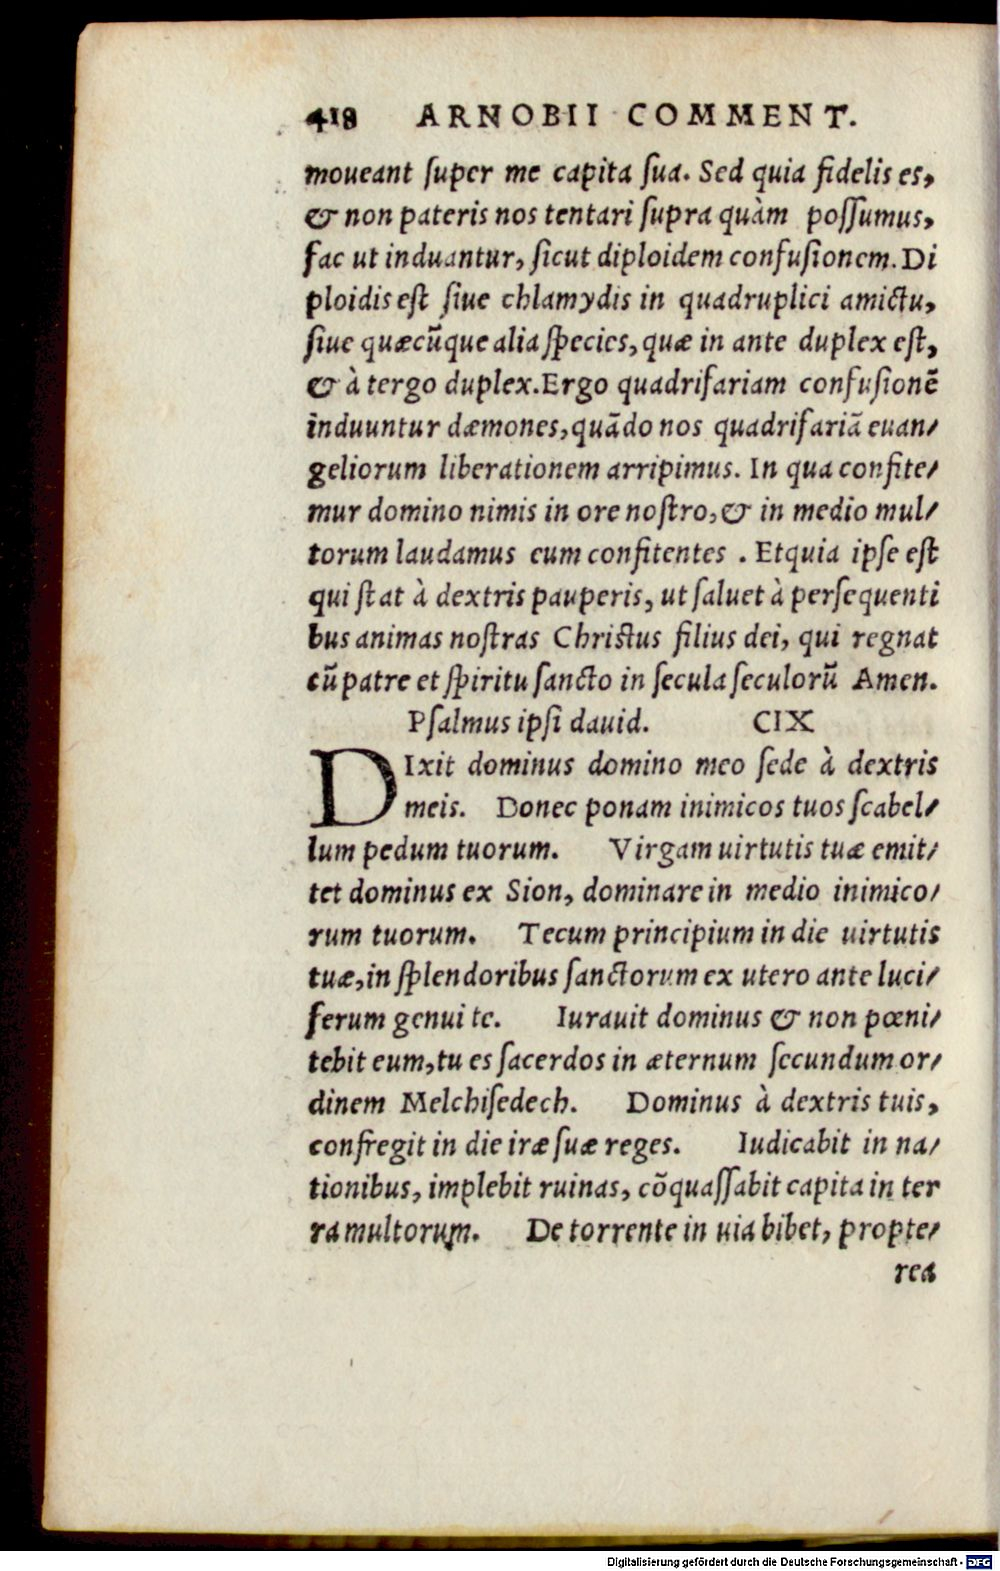 418 ARNOBII COMMENT.
moueant ſuper me capita ſua. Sed quia fidelis es,
& non pateris nos tentari ſupra quàm poſſumus,
fac ut induantur, ſicut diploidem confuſionem. Di
ploidis eſt ſiue chlamydis in quadruplici amictu,
ſiue quæcũque alia ſpecies, quæ in ante duplex eſt,
& à tergo duplex. Ergo quadrifariam confuſionẽ
induuntur dæmones, quãdo nos quadrifariã euan/
geliorum liberationem arripimus. In qua confite/
mur domino nimis in ore noſtro, & in medio mul/
torum laudamus eum confitentes . Et quia ipſe eſt
qui ſtat à dextris pauperis, ut ſaluet à perſequenti
bus animas noſtras Chriſtus filius dei, qui regnat
cũ patre et ſpiritu ſancto in ſecula ſeculorũ Amen.
Pſalmus ipſi dauid. CIX
DIxit dominus domino meo ſede à dextris
meis. Donec ponam inimicos tuos ſcabel/
lum pedum tuorum. Virgam uirtutis tuæ emit/
tet dominus ex Sion, dominare in medio inimico/
rum tuorum. Tecum principium in die uirtutis
tuæ, in ſplendoribus ſanctorum ex utero ante luci/
ferum genui te. Iurauit dominus & non pœni/
tebit eum, tu es ſacerdos in æternum ſecundum or/
dinem Melchiſedech. Dominus à dextris tuis,
confregit in die iræ ſuæ reges. Iudicabit in na/
tionibus, implebit ruinas, cõquaſſabit capita in ter
ra multorum. De torrente in uia bibet, propte/
rea
Digitalisierung gefördert durch die Deutsche Forschungsgemeinschaft - DFG